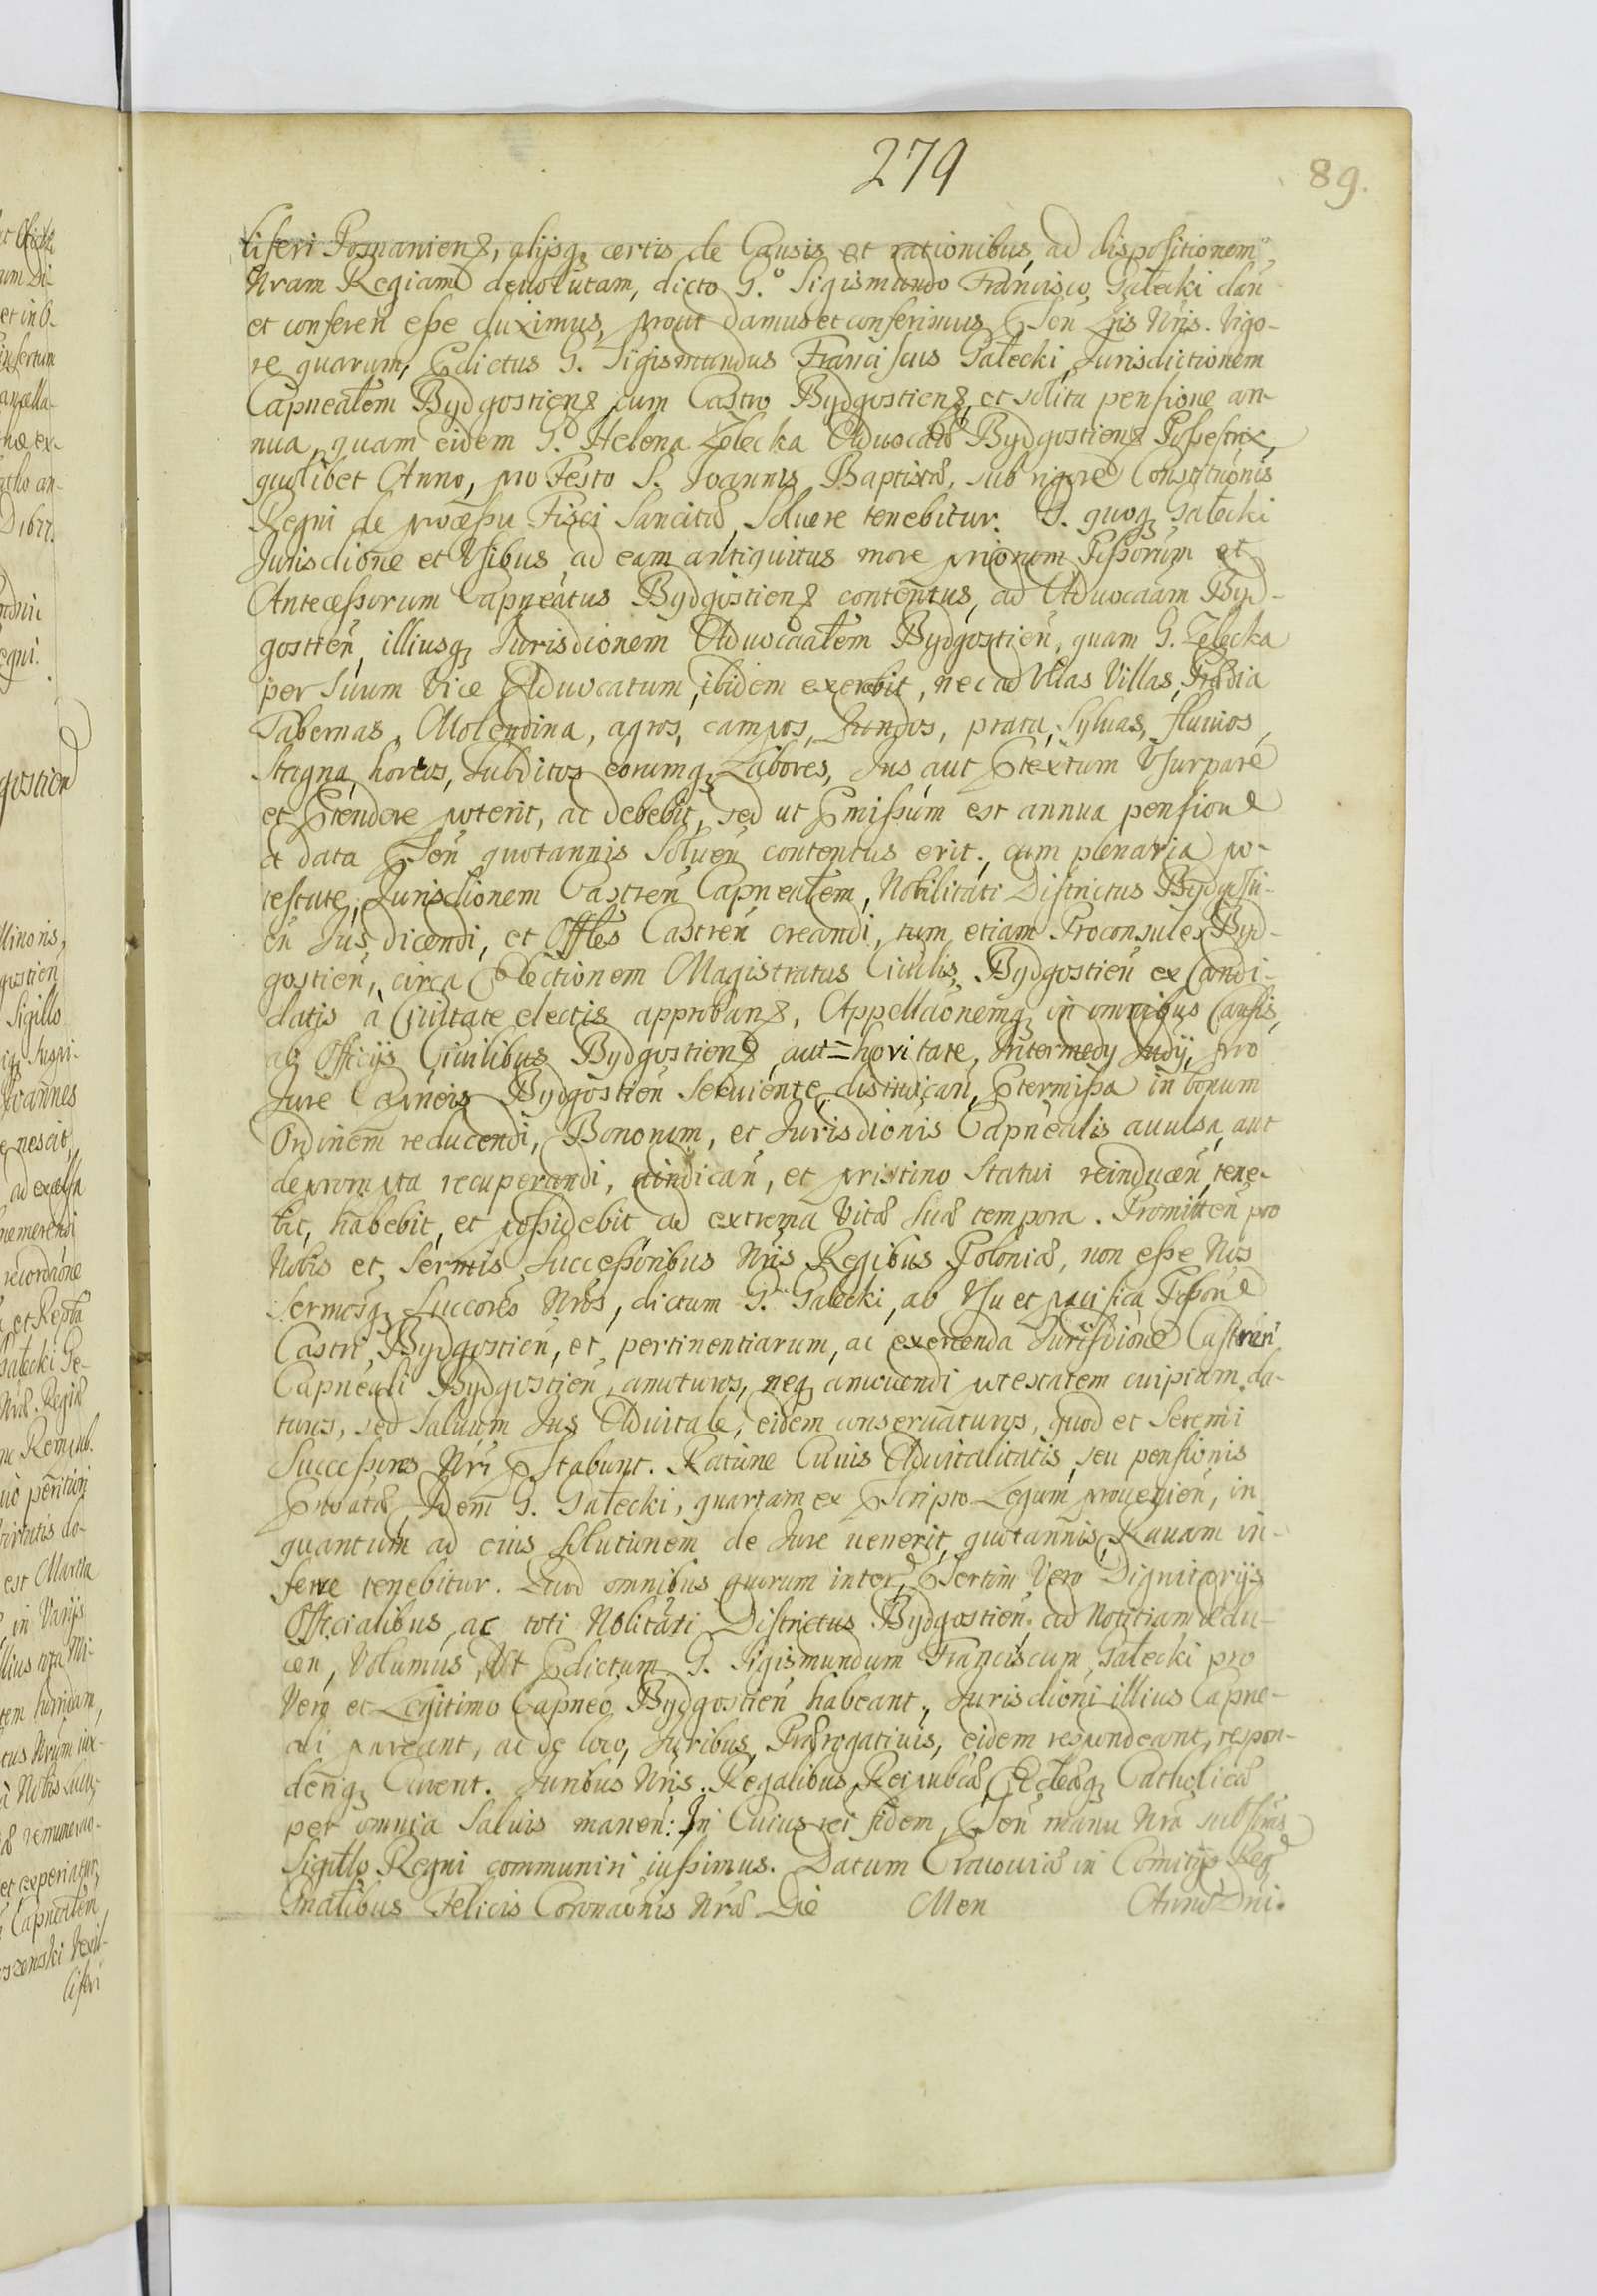 279
89.
liferi Posnaniens, alijsq certis de Causis et rationibus, ad dispositionem
Nram Regiam deuolutam, dicto G.º Sigismundo Francisco Gałecki dan
et conferen esse duximus, prout damus et conferimus Pñsen Lris Nris. Vigo-
re quarum, Pdictus G. Sigismundus Franciscus Gałecki, Jurisdictionem
Capnealem Bydgostiens cum Castro Bydgostiens, et solita pensione an-
nua, quam eidem G. Helena Zelecka Aduocatæ Bydgostiens Possestrix,
quolibet Anno, pro Festo S. Joannis Baptistæ, sub rigore Constitutionis
Regni de processu Fisci Sancitæ, Soluere tenebitur. G. quoq Gałecki
Jurisdione et Vsibus ad eam antiquitus more priorum Possorum et
Antecessorum Capneatus Bydgostiens contentus, ad Aduocaam Byd-
gostien, illiusq Jurisdionem Aduocaalem Bydgostien, quam G. Zelecka
per Suum Vice Aduocatum, ibidem exercebit, nec ad Vllas Villas, Prædia
Tabernas, Molendina, agros, campos, fundos, prata, Syluas, fluuios,
Stagna, hortos, Subditos eorumq Labores, Jus aut Ptextum Vsurpare
et Ptendere poterit, ac debebit, sed ut Pmissum est annua pensione
a data Pñsen quotannis Soluen contentus erit. cum plenaria po-
testate, Jurisdionem Castren Capnealem, Nobilitati Districtus Bydgosti-
en Jus dicendi, et Offles Castren creandi, tum etiam Proconsules Byd-
gostien, circa Electionem Magistratus Ciuilis, Bydgostien ex Candi-
datis à Ciuitate electis approbans, Appellaonemq in omnibus Causis,
ab Officijs Ciuilibus Bydgostiens aut=horitate, Intermedij Judij, pro
Jure Capneis Bydgostien Seruiente, distudican, Ptermissa in bonum
Ordinem reducendi, Bonorum, et Jurisdionis Capnealis auulsa, aut
deprompta recuperandi, uindican, et pristino Statui reinducen, tene-
bit, habebit, et possidebit ad extrema Vitæ Suæ tempora. Promitten pro
Nobis et Sermis Successoribus Nris Regibus Poloniæ, non esse Nos
Sermosq Succores Nros, dictum G. Gałecki, ab Vsu et pacifica Possone
Castri Bydgostien, et pertinentiarum, ac exercenda Jurisdione Castren
Capneali Bydgostien, amoturos, neq amouendi potestatem cuipiam da-
turos, sed Saluum Jus Aduitale, eidem conseruaturos, quod et Seremi
Successores Nri Pstabunt. Ratione Cuius Aduitalitatis, seu pensionis
Idem G. Gałecki, quartam ex Pscripto Legum prouenien, in
quantum ad eius Solutionem de Jure uenerit, quotannis, Rauam in-
ferre tenebitur. Quod omnibus quorum interē, Psertim Vero Dignitarijs
Officialibus, ac toti Nobilitati Districtus Bydgostien, ad Notitiam dedu-
cen, Volumus, Vt Pdictum G. Sigismundum Franciscum Gałecki pro
Vero et Legitimo Capneo Bydgostien habeant, Jurisdioni illius Capne-
ali pareant, ac de loco, Juribus, Prærogatiuis, eidem respondeant, respon-
deriq Curent. Juribus Nris. Regalibus, Reipubcæ, Eccleæq Catholicæ
per omnia Saluis manen: In Cuius rei fidem, Pñsen manu Nra subscriptas
Sigillo Regni communiri iussimus. Datum Cracouiæ in Comitijs Regni
Gnalibus Felicis Coronaonis Nræ Die Men Anno Dni.